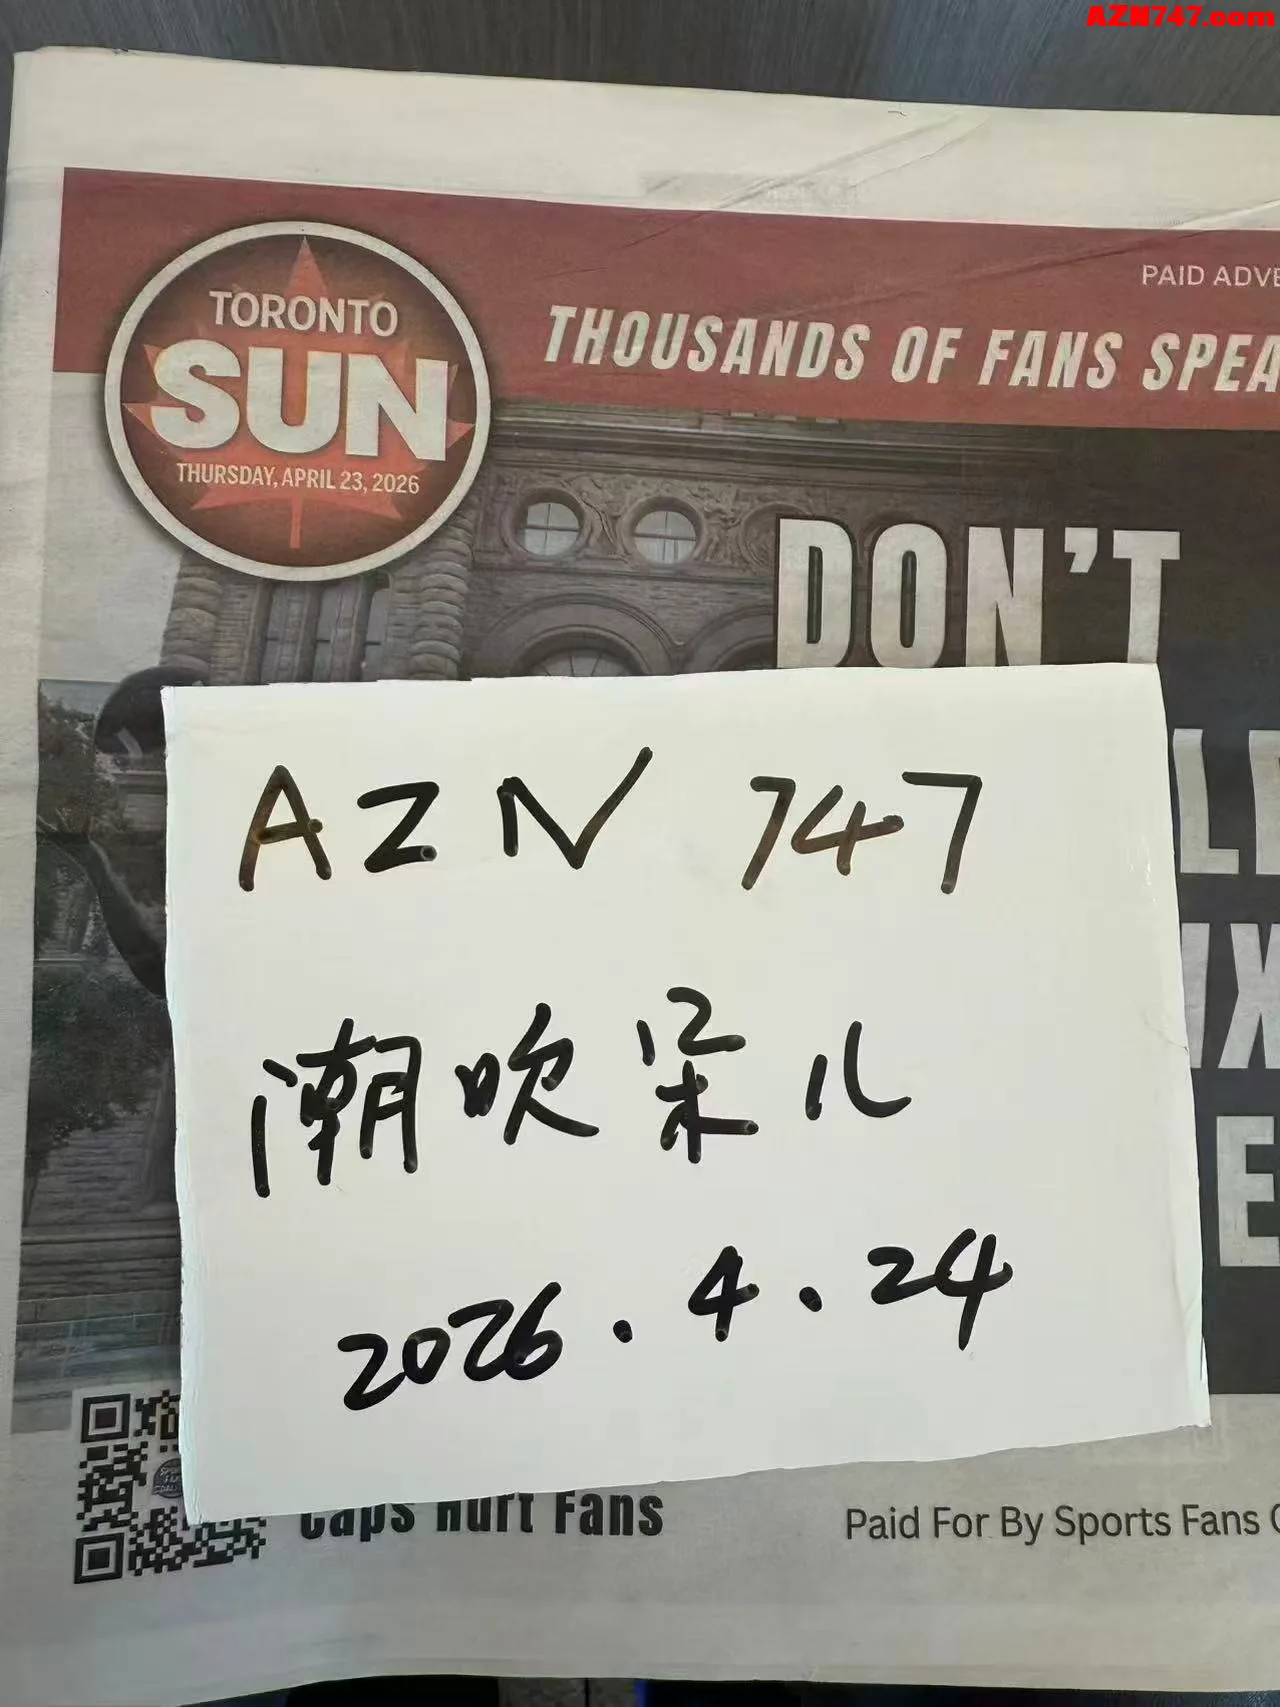 AZN747.com
PAID ADVE
TORONTO
SUN
THURSDAY, APRIL 23, 2026
THOUSANDS OF FANS SPEA
DON'T
AZN 747
潮吹朵儿
2026.4.24
Caps Hurt Fans
Paid For By Sports Fans C